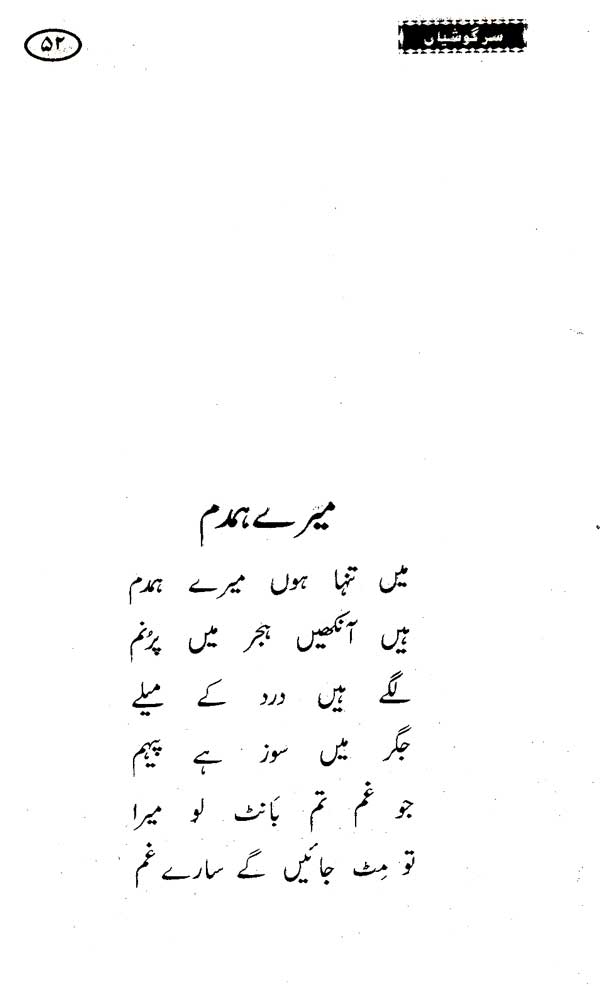 سرگوشیاں
۵۲
میرے ہمدم
میں تنہا ہوں میرے ہمدم
ہیں آنکھیں ہجر میں پُرنم
لگے ہیں درد کے میلے
جگر میں سوز ہے پیہم
جو غم تم بَانٹ لو میرا
تو مِٹ جائیں گے سارے غم